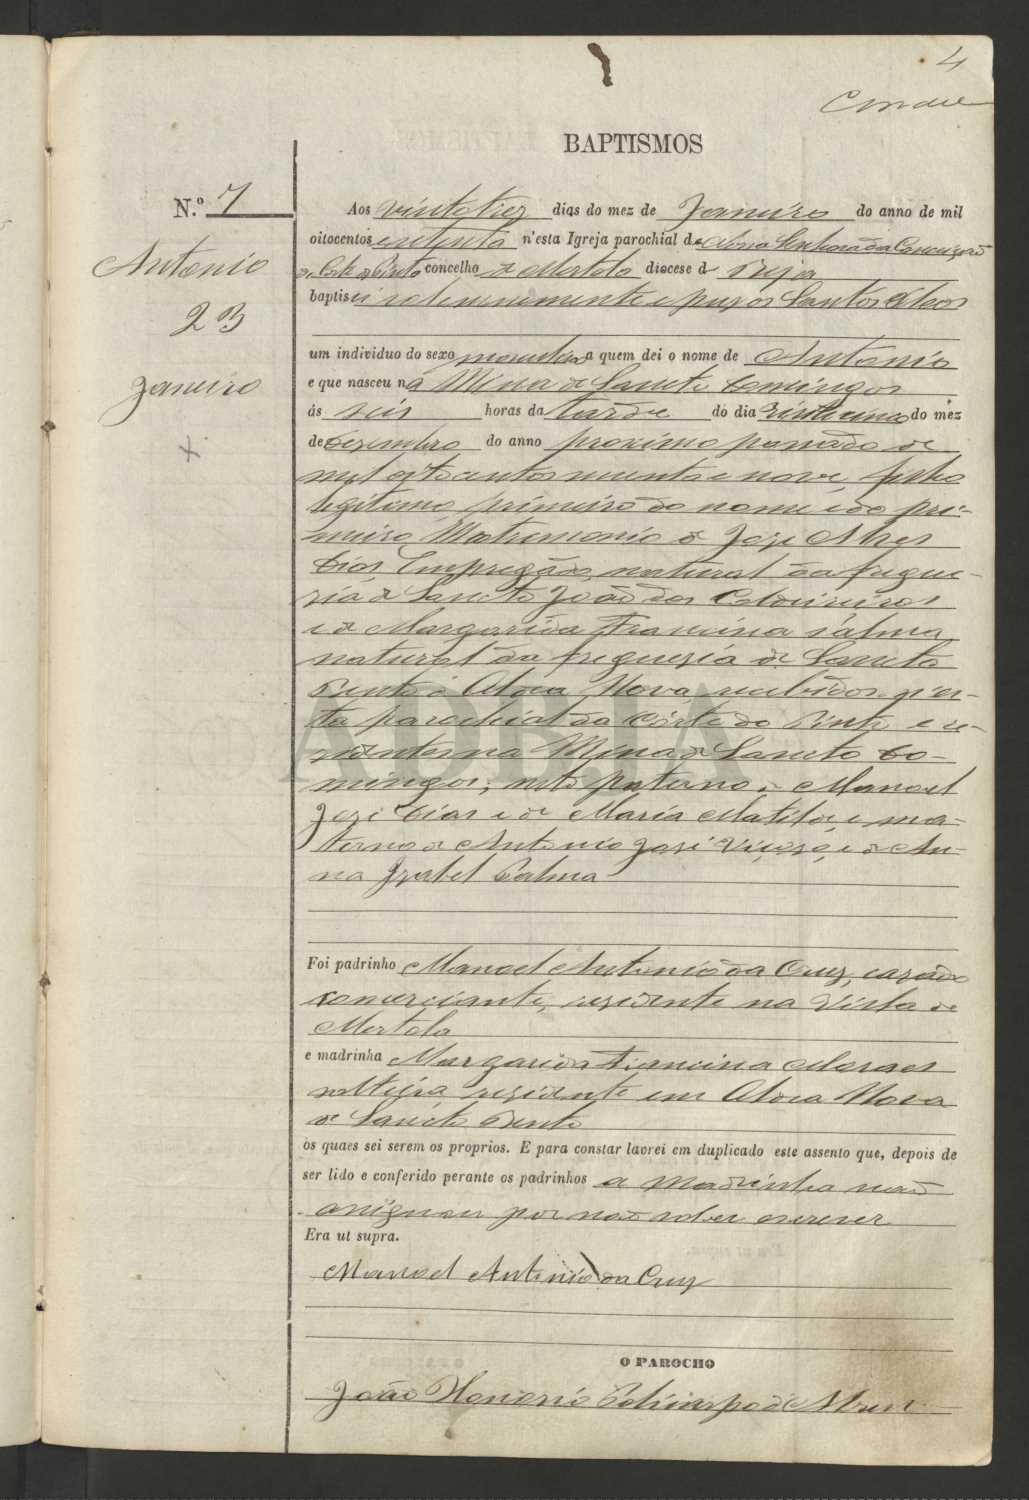 4
BAPTISMOS
N.º 7
Antonio
23
Janeiro
Aos vinte trez dias do mez de Janeiro do anno de mil
oitocentos e oitenta n'esta Igreja parochial de Nossa Senhora da Conceição
da Corte do Pinto concelho de Mertola diocese de Beja
baptisei solemnemente e puz os Santos Oleos
um individuo do sexo masculino a quem dei o nome de Antonio
e que nasceu na Mina de Sancto Domingos
ás seis horas da tarde do dia vinte um do mez
de Dezembro do anno proximo passado de
mil oitocentos setenta e nove, filho
legitimo, primeiro do nome e do pri-
meiro Matrimonio de Joze Alves
Dias, Empregado, natural da fregue-
zia de Sancto João dos Caldeireiros
e de Margarida Francisca Palma,
natural da freguezia de Sancta
Aldea Nova, recebidos n'es-
ta parochial da Côrte do Pinto e re-
zidentes na Mina de Sancto Do-
mingos; neto paterno de Manoel
Joze Dias e de Maria Matilde, e ma-
terno de Antonio Joze e de An-
na Izabel Palma
ADBJA
Foi padrinho Manoel Antonio da Cruz, cazado
comerciante, rezidente na Villa de
Mertola
e madrinha Margarida Francisca Moraes
solteira, rezidente em Aldea Nova
de Sancto Bento
os quaes sei serem os proprios. E para constar lavrei em duplicado este assento que, depois de
ser lido e conferido perante os padrinhos a Madrinha não
assignou por não saber escrever
Era ut supra.
Manoel Antonio da Cruz
O PAROCHO
João de Abreu